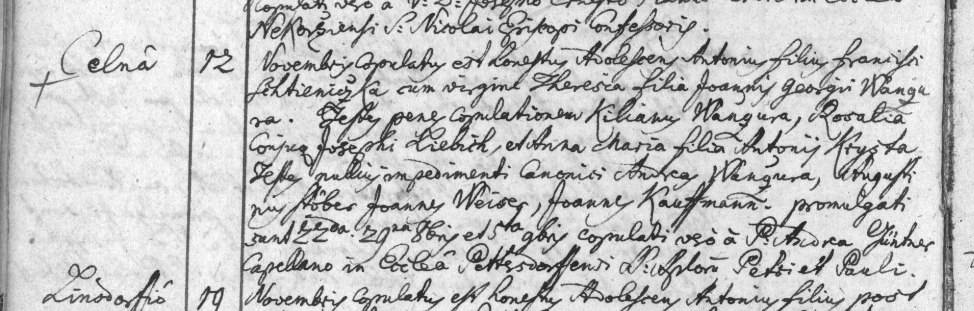 copulati
Nekorziensi S. Nicolai Episcopi Confessoris.
Celnâ 12 Novembris copulatus est honestus Adolescens Antonius filius Francisci
cum virgine Theresia filia Joannis Georgii Wangu
ra. Testes penes copulationem Kilianus Wangura, Rosalia
Conjux Josephi Liebich, et Anna Maria filia Antonij Krysta
Testes nullius impedimenti Canonici Andreas Wangura, Augusti
nus Stöber Joannes Weiser, Joannes Kauffmann. promulgati
sunt 22da 29na 8bris et 5ta 9bris copulati vero à P. Andrea Güntner
Capellano in Ecclesia Pettersdorffensi S. Petri et Pauli.
19 Novembris copulatus est honestus Adolescens Antonius filius post